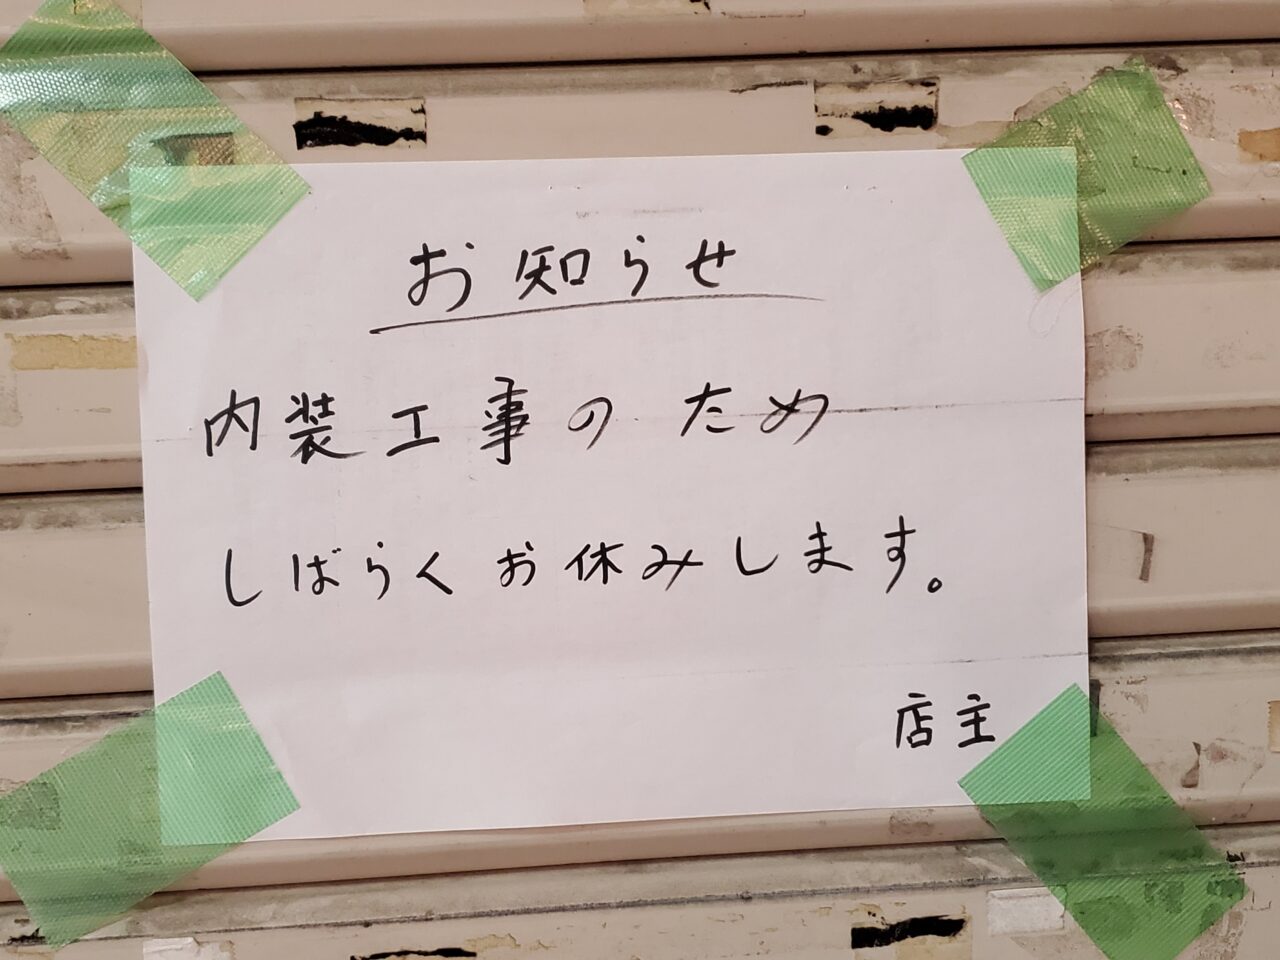 お知らせ
内装工事のため
しばらくお休みします。
店主